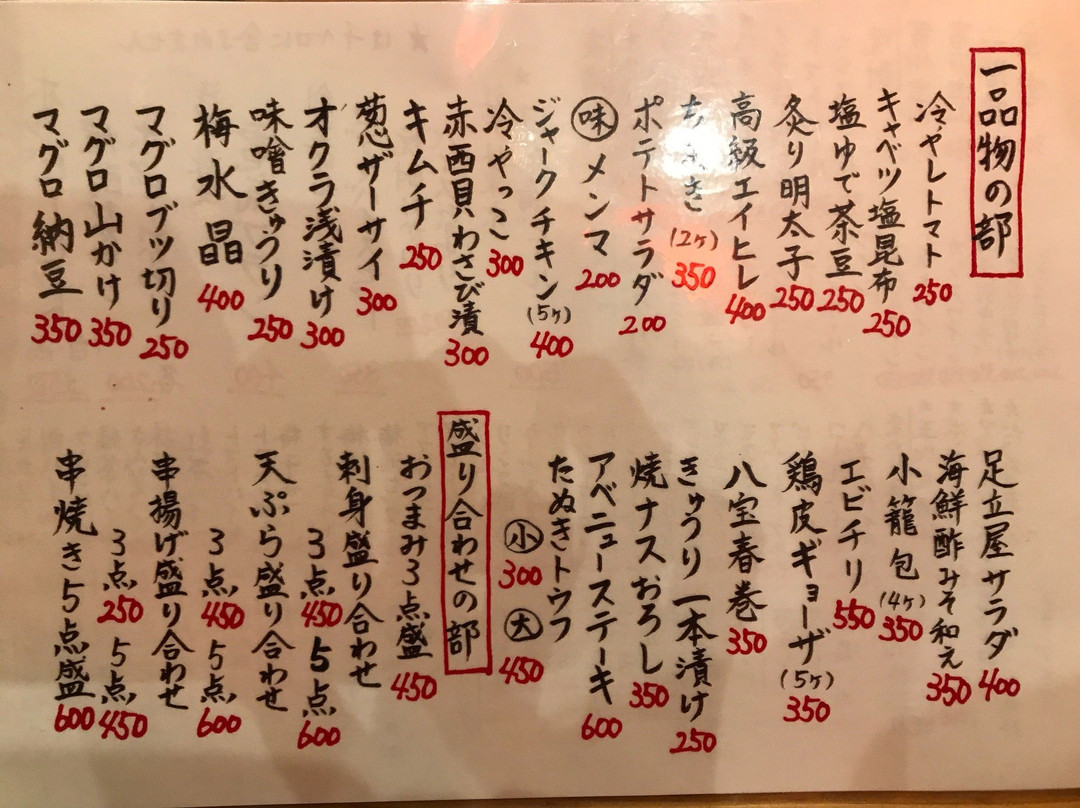 一品物の部
冷やしトマト 250
キャベツ塩昆布 250
塩ゆで茶豆 250
炙り明太子 250
高級エイヒレ 400
(2ケ) 350
ポテトサラダ 200
味メンマ 200
ジャークチキン(5ケ) 400
冷やっこ 300
赤西貝わさび漬 300
キムチ 250
葱ザーサイ 300
オクラ浅漬け 300
味噌きゅうり 250
梅水晶 400
マグロブツ切り 250
マグロ山かけ 350
マグロ納豆 350
足立屋サラダ 400
海鮮酢みそ和え 350
小籠包(4ケ) 350
エビチリ 550
鶏皮ギョーザ(5ケ) 350
八宝春巻 350
きゅうり一本漬け 250
焼ナスおろし 350
アベニューステーキ 600
たぬきトウフ
小 300 大 450
盛り合わせの部
おつまみ3点盛 450
刺身盛り合わせ
3点 450 5点 600
天ぷら盛り合わせ
3点 450 5点 600
串揚げ盛り合わせ
3点 250 5点 450
串焼き5点盛 600